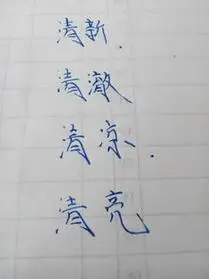 清新
清澈
清凉
清亮